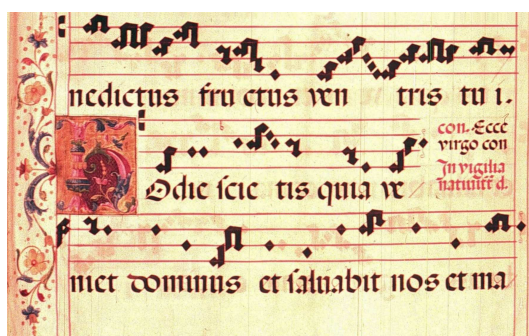 nedictus fru ctus ven tris tu i.
con. Ecce
virgo con
In vigilia
Hodie scie tis quia ve
niet dominus et saluabit nos et ma